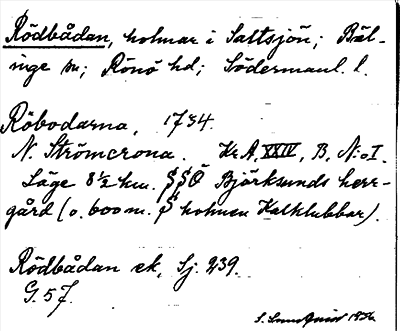 Rödbådan, holmar i Saltsjön; Bäl-
inge sn; Rönö hd; Södermanl. l.
Röbodarna, 1734.
N. Strömcrona. Kr A, XXIV, B, N:o I.
Läge 8½ km. SSO Björksunds herr-
gård (o. 600 m. S holmen Kalklubbar).
Rödbådan ek, Sj. 239.
G. 57.
S. 1936